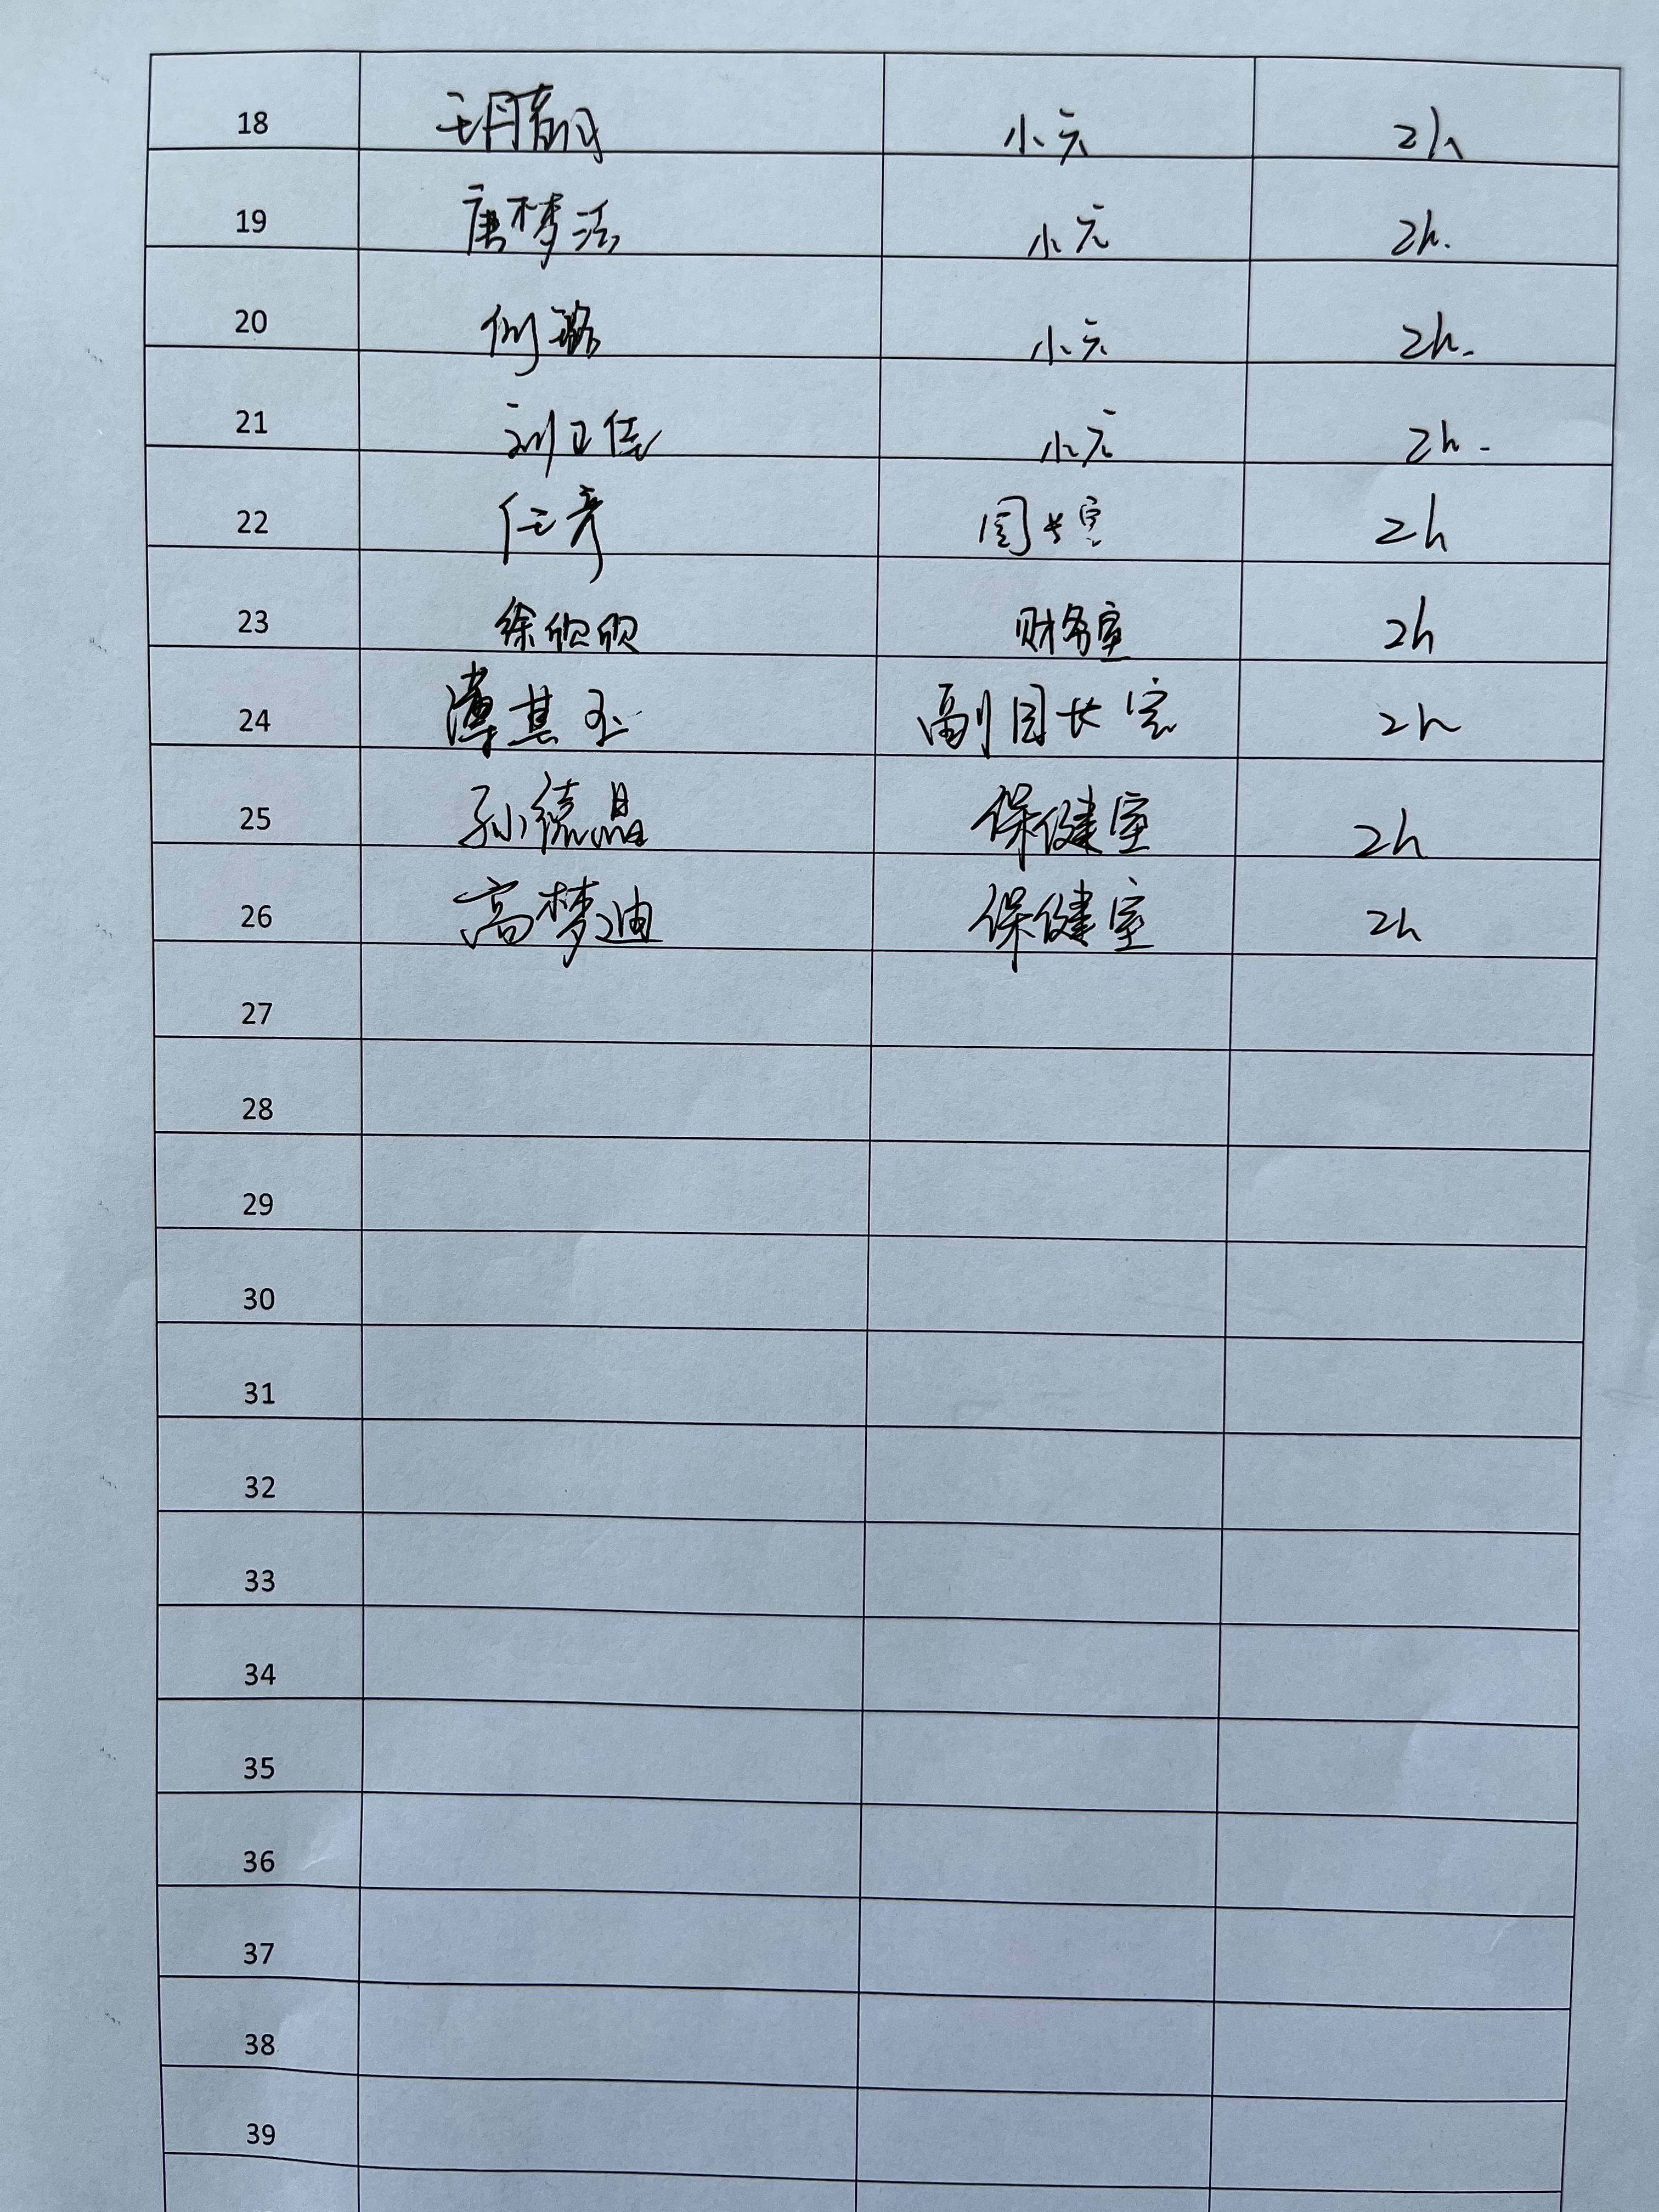 18 小六 2h
19 唐梦洁 小六 2h.
20 何璐 小六 2h.
21 刘卫佳 小六 2h.
22 任彦 园长室 2h
23 徐欣欣 财务室 2h
24 薄其玉 副园长室 2h
25 孙德晶 保健室 2h
26 高梦迪 保健室 2h
27
28
29
30
31
32
33
34
35
36
37
38
39